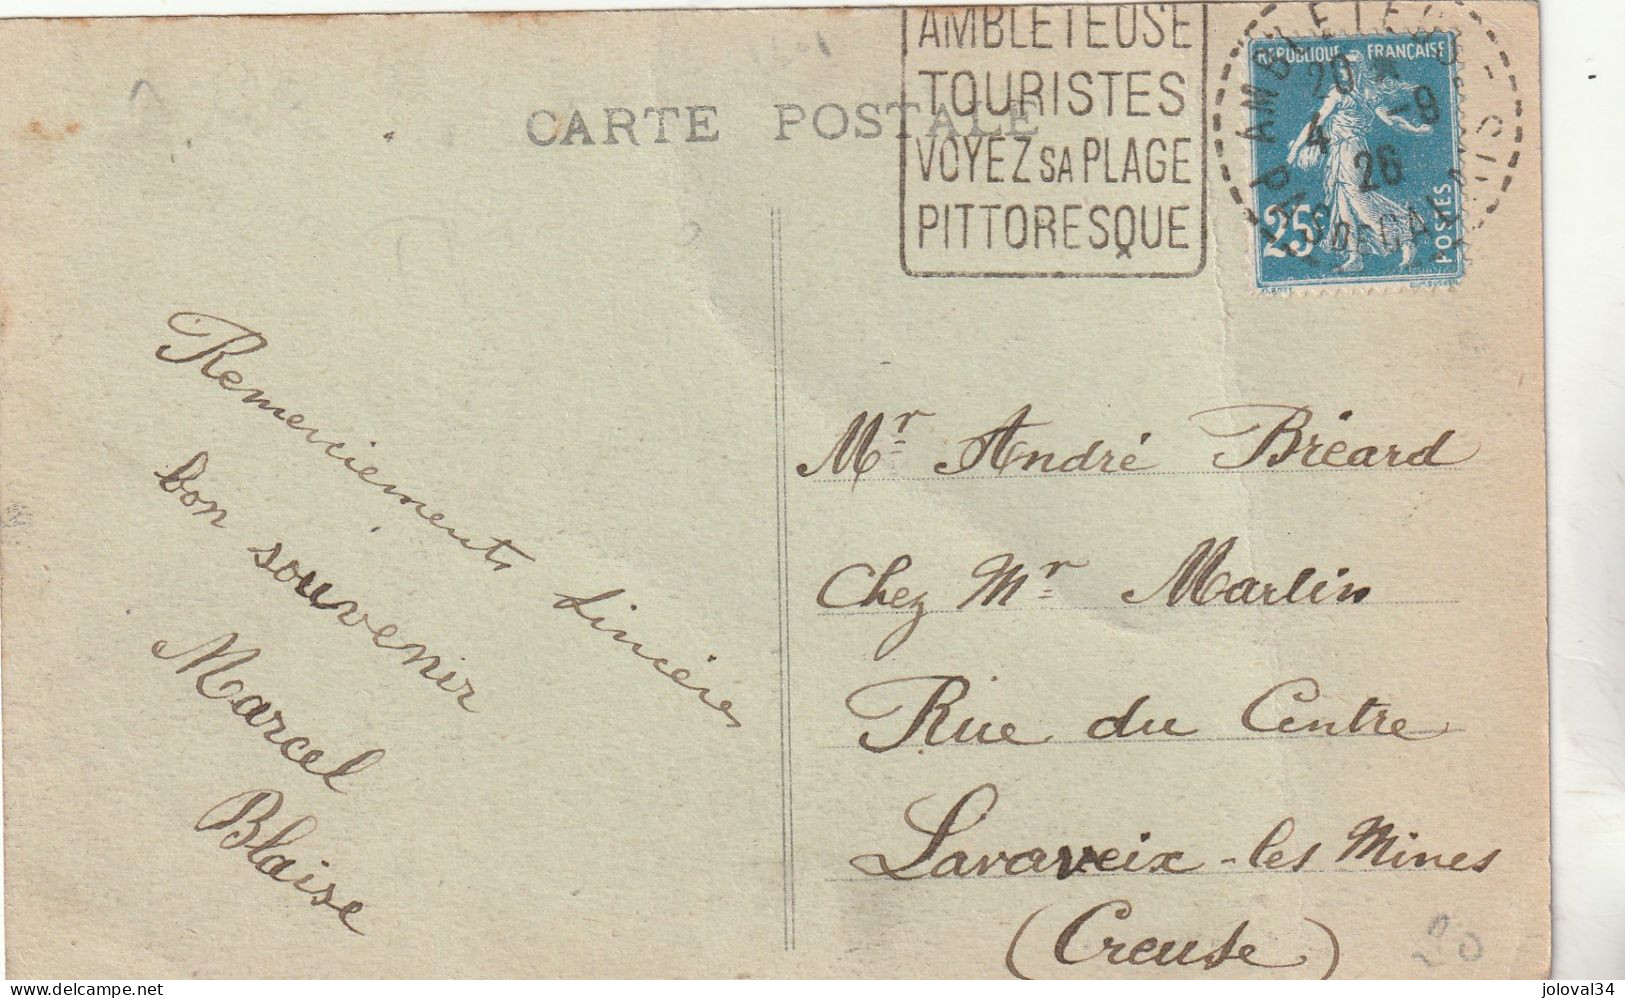 CARTE POSTALE
AMBLETEUSE
TOURISTES
VOYEZ SA PLAGE
PITTORESQUE
RÉPUBLIQUE FRANÇAISE
20
4 -9
26
25
POSTES
AMBLETEUSE
PAS DE CALAIS
Remerciements sincères
bon souvenir
Marcel
Blaise
Mr André Bréard
Chez Mr Martin
Rue du Centre
Lavaveix-les Mines
(Creuse)
20
joloval34